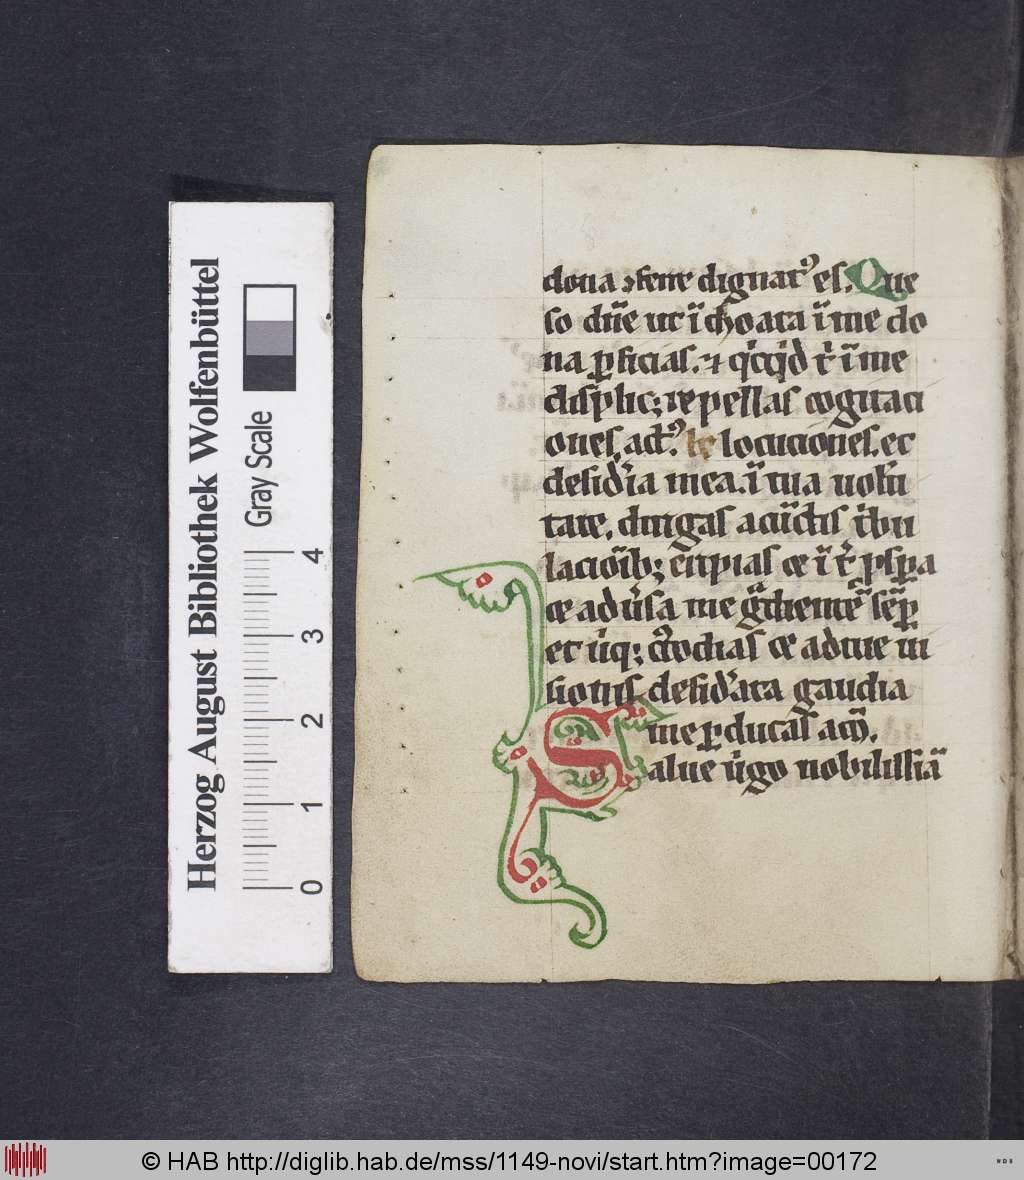 Herzog August Bibliothek Wolfenbüttel
Gray Scale
0 1 2 3 4
dona ꝯferre dignatꝰ es. Que
so dn̄e ut ı̄choata ı̄ me do
na ꝑficias. ⁊ qͥcqͥd tͥ ı̄ me
displicꝫ repellas cogitaci
ones, actꝰ. locuciones. et
desid̾ia mea. ı̄ tua uolū
tate, dirigas a cūctis tͥbu
lacioībꝫ eripias
ad ū̾sa me semꝑ
et ubiqꝫ custodias
sionis desid̾ata gaudia
me ꝑducas
Salue uͥgo nobilissiā
© HAB http://diglib.hab.de/mss/1149-novi/start.htm?image=00172